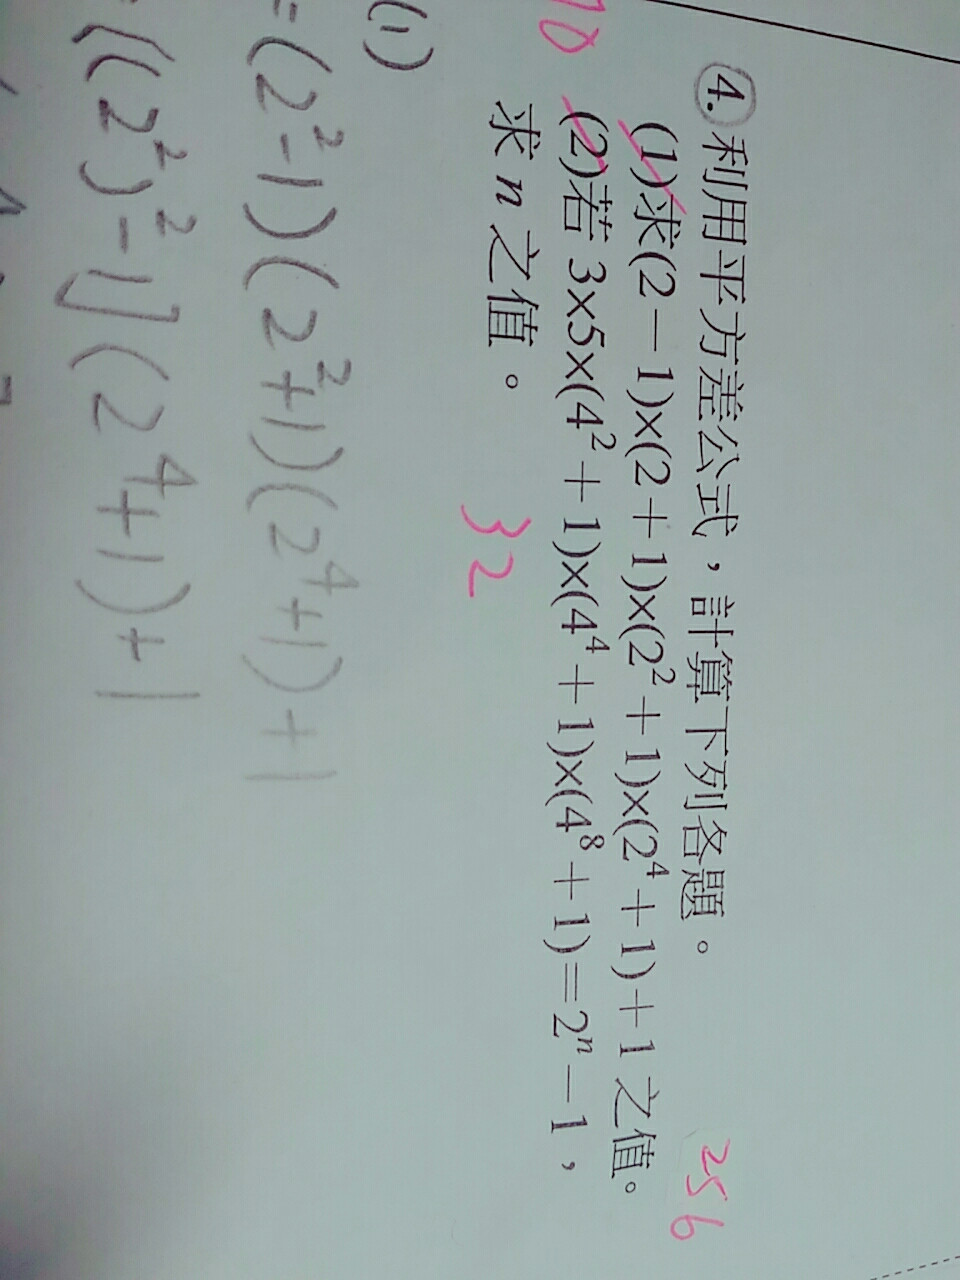 ④.利用平方差公式，計算下列各題。
256
(1)求(2－1)×(2＋1)×(2²＋1)×(2⁴＋1)＋1 之值。
(2)若 3×5×(4²＋1)×(4⁴＋1)×(4⁸＋1)＝2ⁿ－1，
求 n 之值。
32
(1)
=(2²-1)(2²+1)(2⁴+1)+1
=[(2²)²-1](2⁴+1)+1